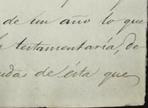 de un año lo que
testamentaría, de
udas de ésta que